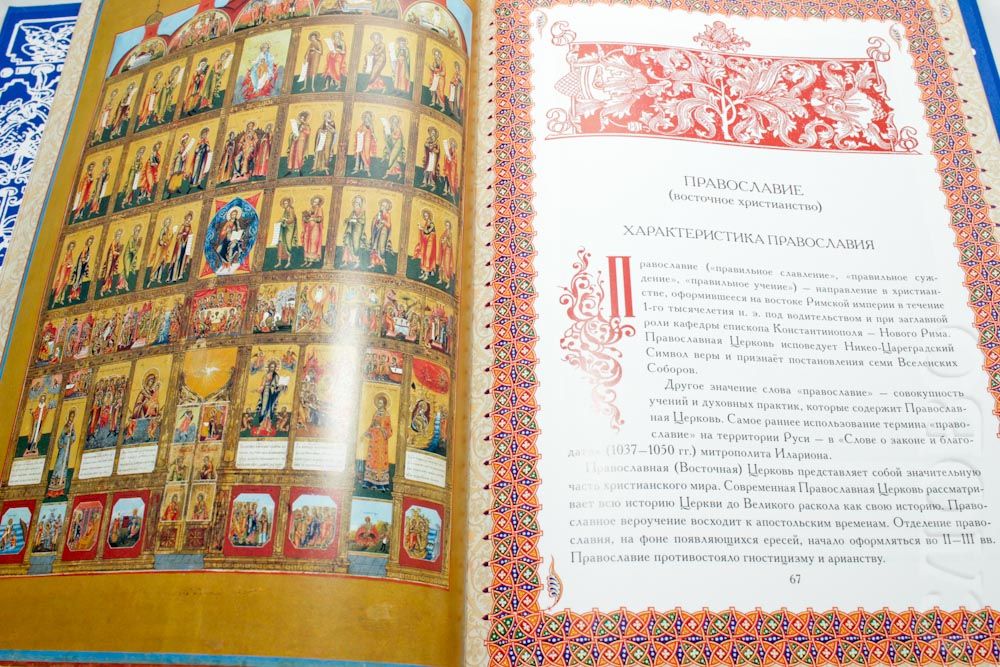 ПРАВОСЛАВИЕ
(восточное христианство)
ХАРАКТЕРИСТИКА ПРАВОСЛАВИЯ
Православие («правильное славление», «правильное суж-
дение», «правильное учение») — направление в христиан-
стве, оформившееся на востоке Римской империи в течение
1-го тысячелетия н. э. под водительством и при заглавной
роли кафедры епископа Константинополя – Нового Рима.
Православная Церковь исповедует Никео-Цареградский
Символ веры и признаёт постановления семи Вселенских
Соборов.
Другое значение слова «православие» — совокупность
учений и духовных практик, которые содержит Православ-
ная Церковь. Самое раннее использование термина «право-
славие» на территории Руси — в «Слове о законе и благо-
дати» (1037—1050 гг.) митрополита Илариона.
Православная (Восточная) Церковь представляет собой значительную
часть христианского мира. Современная Православная Церковь рассматри-
вает всю историю Церкви до Великого раскола как свою историю. Право-
славное вероучение восходит к апостольским временам. Отделение право-
славия, на фоне появляющихся ересей, начало оформляться во II—III вв.
Православие противостояло гностицизму и арианству.
67